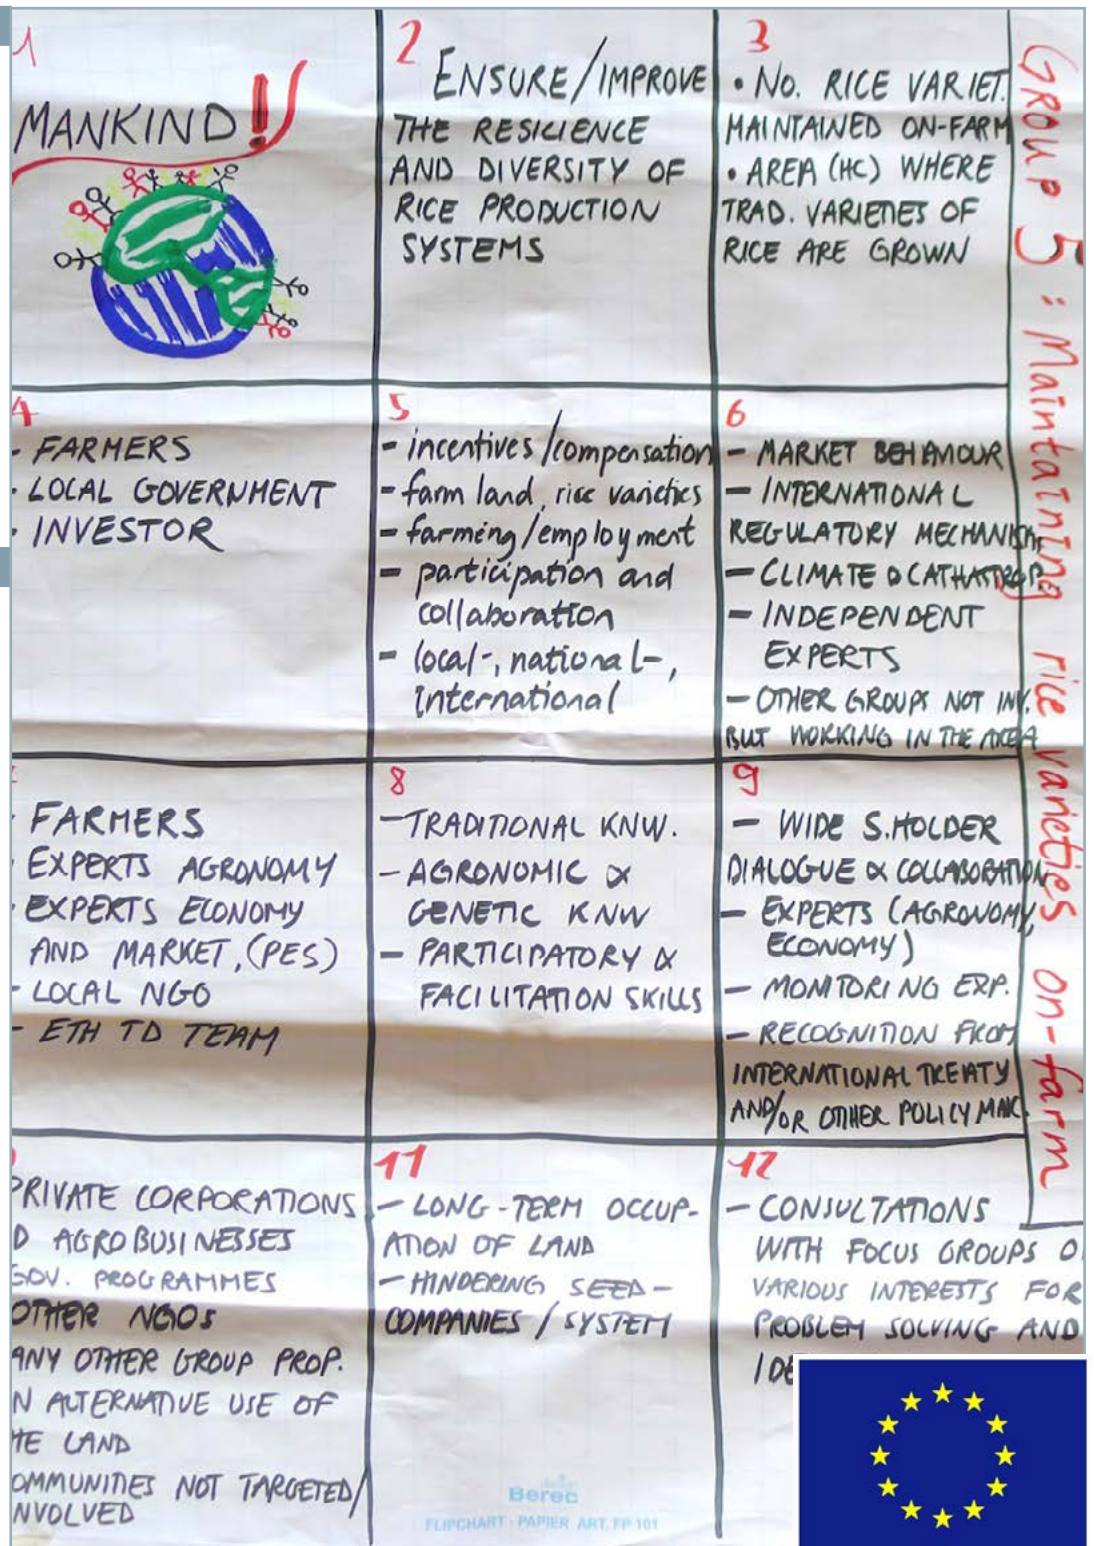 1
MANKIND!!
2
ENSURE/IMPROVE
THE RESILIENCE
AND DIVERSITY OF
RICE PRODUCTION
SYSTEMS
3
• NO. RICE VARIET.
MAINTAINED ON-FARM
• AREA (HC) WHERE
TRAD. VARIETIES OF
RICE ARE GROWN
GROUP 5 : Maintaining rice varieties on-farm
4
- FARMERS
- LOCAL GOVERNMENT
- INVESTOR
5
- incentives/compensation
- farm land, rice varieties
- farming/employment
- participation and
collaboration
- local-, national-,
international
6
- MARKET BEHAVIOUR
- INTERNATIONAL
REGULATORY MECHANISM
- CLIMATE & CATHASTROP.
- INDEPENDENT
EXPERTS
- OTHER GROUPS NOT INV.
BUT WORKING IN THE AREA
FARMERS
EXPERTS AGRONOMY
EXPERTS ECONOMY
AND MARKET, (PES)
- LOCAL NGO
- ETH TD TEAM
8
- TRADITIONAL KNW.
- AGRONOMIC &
GENETIC KNW
- PARTICIPATORY &
FACILITATION SKILLS
9
- WIDE S.HOLDER
DIALOGUE & COLLABORATION
- EXPERTS (AGRONOMY,
ECONOMY)
- MONITORING EXP.
- RECOGNITION FROM
INTERNATIONAL TREATY
AND/OR OTHER POLICY MAK.
PRIVATE CORPORATIONS
D AGROBUSINESSES
GOV. PROGRAMMES
OTHER NGOS
ANY OTHER GROUP PROP.
N ALTERNATIVE USE OF
HE LAND
OMMUNITIES NOT TARGETED/
NVOLVED
11
- LONG-TERM OCCUP-
ATION OF LAND
- HINDERING SEED-
COMPANIES / SYSTEM
12
- CONSULTATIONS
WITH FOCUS GROUPS O
VARIOUS INTERESTS FOR
PROBLEM SOLVING AND
IDE
Berec
FLIPCHART - PAPIER ART. FP 101